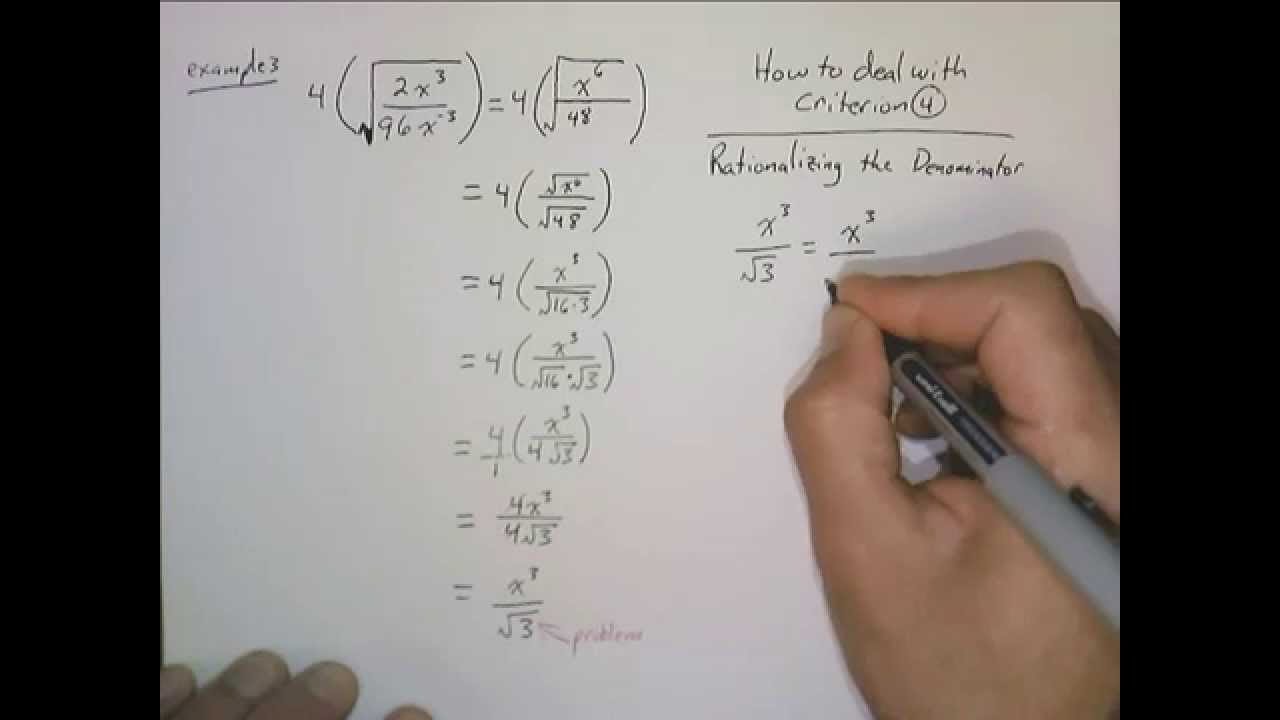 example 3
4(√(2x³/96x⁻³)) = 4(√(x⁶/48))
= 4(√x⁶/√48)
= 4(x³/√16·3)
= 4(x³/√16·√3)
= 4/1(x³/4√3)
= 4x³/4√3
= x³/√3
problem
How to deal with
Criterion ④
Rationalizing the Denominator
x³/√3 = x³
uni-ball